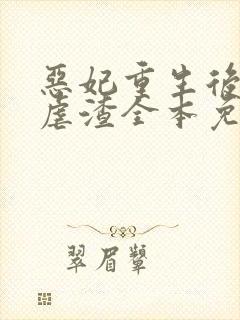 惡妃重生後
虐渣全本免
翠眉顰